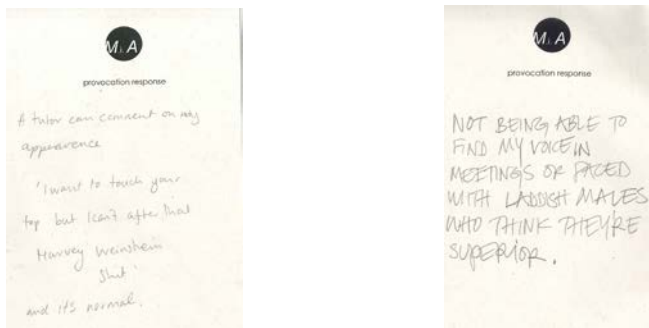 M A
provocation response
A tutor can comment on my
appearence
'I want to touch your
top but I can't after that
Harvey Weinstein
shit'
and it's normal.
M A
provocation response
NOT BEING ABLE TO
FIND MY VOICE IN
MEETINGS OR FACED
WITH LADDISH MALES
WHO THINK THEY'RE
SUPERIOR.